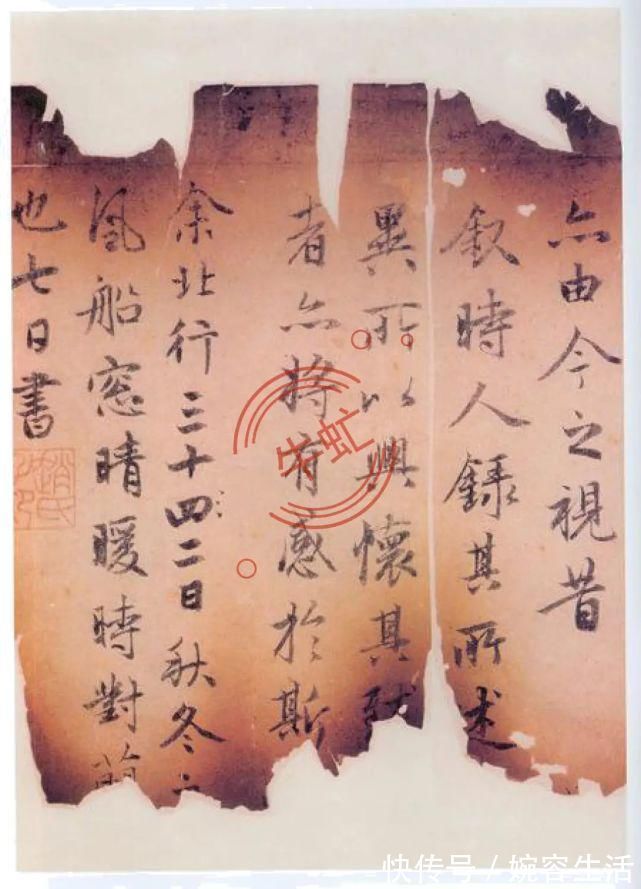 亦由今之視昔
叙時人録其所述
異所以興懷其致
者亦將有感於斯
余北行三十四二日秋冬之
風船窓晴暖時對
也七日書
趙氏
牛虹
快传号 / 婉容生活